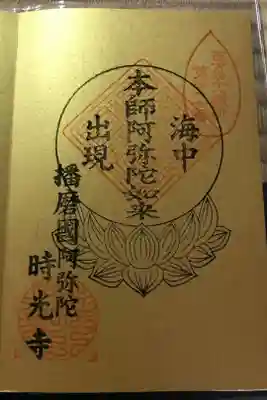 海中
本師阿弥陀如来
出現
播磨國阿弥陀
時光寺